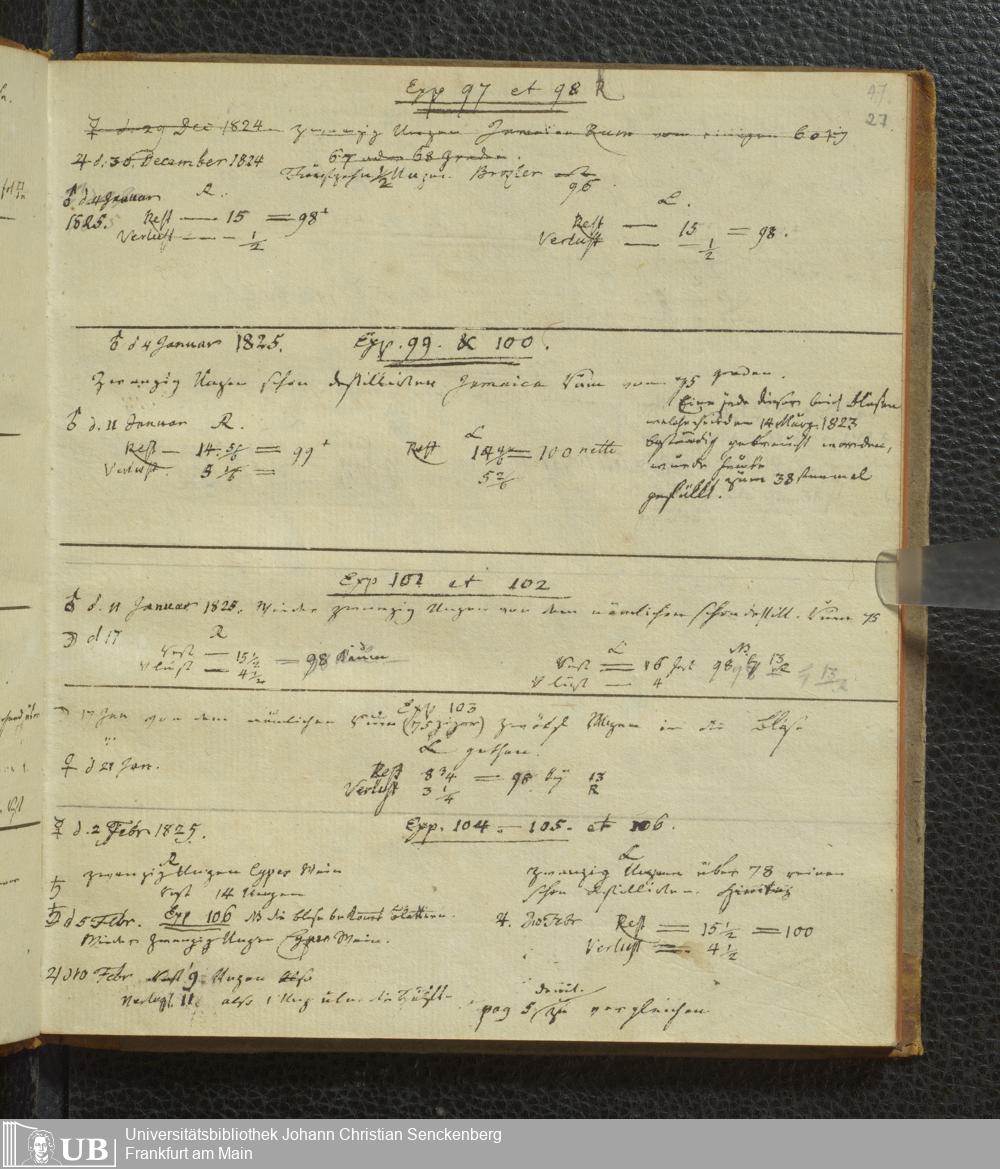 Exp 97 et 98 R
47.
27
♀ d. 29 Dec 1824 zwanzig Unzen Jamaica Rum vom einigen 60
67 oder 68 Graden.
♃ d. 30. December 1824
Fünfzehn 1/2 Unzen. Brozler
96
♂ d 4 Januar R.
1825. Rest — 15 = 98+
Verlust — 1/2
L.
Rest — 15 = 98.
Verlust — 1/2
♂ d 4 Januar 1825. Exp. 99. & 100.
Zwanzig Unzen schon destillirten Jamaica Rum von 75 graden.
Eine jede dieser beid Blasen
welche seit dem 14 März 1823
beständig gebraucht worden,
wurde heute
zum 38 stenmal
gefüllt.
♂ d. 11 Januar R.
Rest — 14 5/6 = 99+
Verlust 5 1/6 =
L
Rest = 100 nette
5 2/6
Exp 101 et 102
♂ d. 11 Januar 1825. Wieder zwanzig Unzen von dem nämlichen schon destill. Rum 75
☽ d 17 R
Rest — 15 1/2 = 98 kaum
Vlust — 4 1/2
L NB
Rest = 16 fast 98 13
Vlust — 4
Exp 103
☽ 17 Jan von dem nämlichen Rum (75ziger) zwölf Unzen in die Blase
L gethan.
♀ d 21 Jan.
Rest 8 3/4 = 98 bey 13
Verlust 3 1/4 R
☿ d. 2 Febr 1825. Exp. 104. — 105. et 106.
R
zwanzig Unzen Cyper Wein
Rest 14 Unzen
L
zwanzig Unzen über 78 reinen
schon destillirten
♄ d 5 Febr. Exp 106 NB die blase bekomt blattern.
Wieder zwanzig Unzen Cyper Wein.
♃ d 10 Febr Rest 9 Unzen also
Verlust 11 also 1 Unz über die Hälft
♃. d 10 Febr Rest = 15 1/2 = 100
Verlust = 4 1/2
damit
pag 5 zu vergleichen
UB
Universitätsbibliothek Johann Christian Senckenberg
Frankfurt am Main